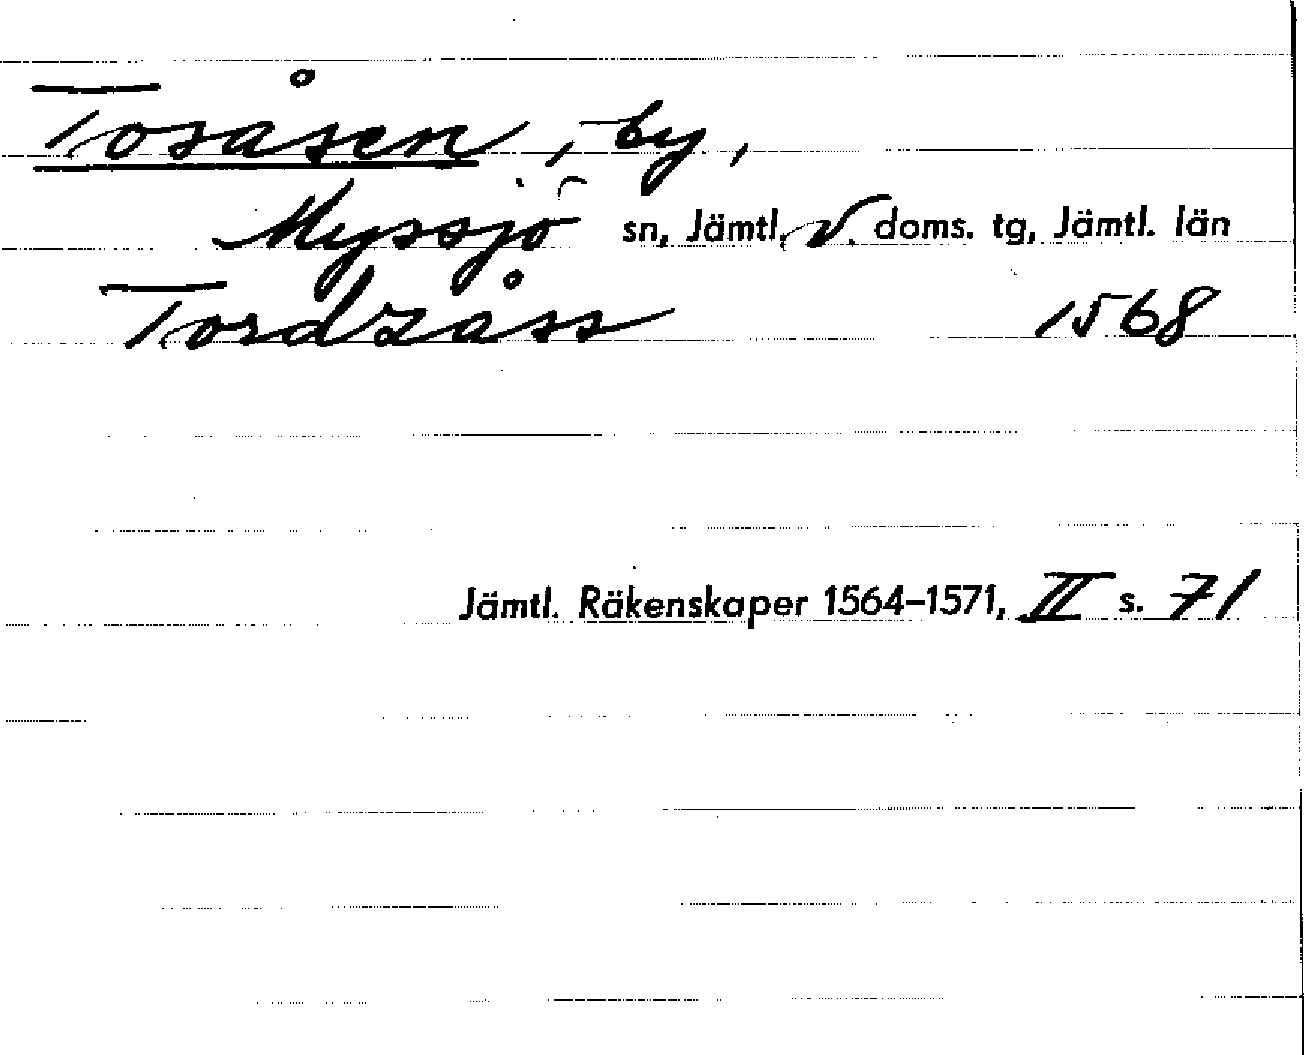 Tosåsen, by,
Myssjö sn, Jämtl. v. doms. tg, Jämtl. län
Tordzåss 1568
Jämtl. Räkenskaper 1564-1571, II s. 71